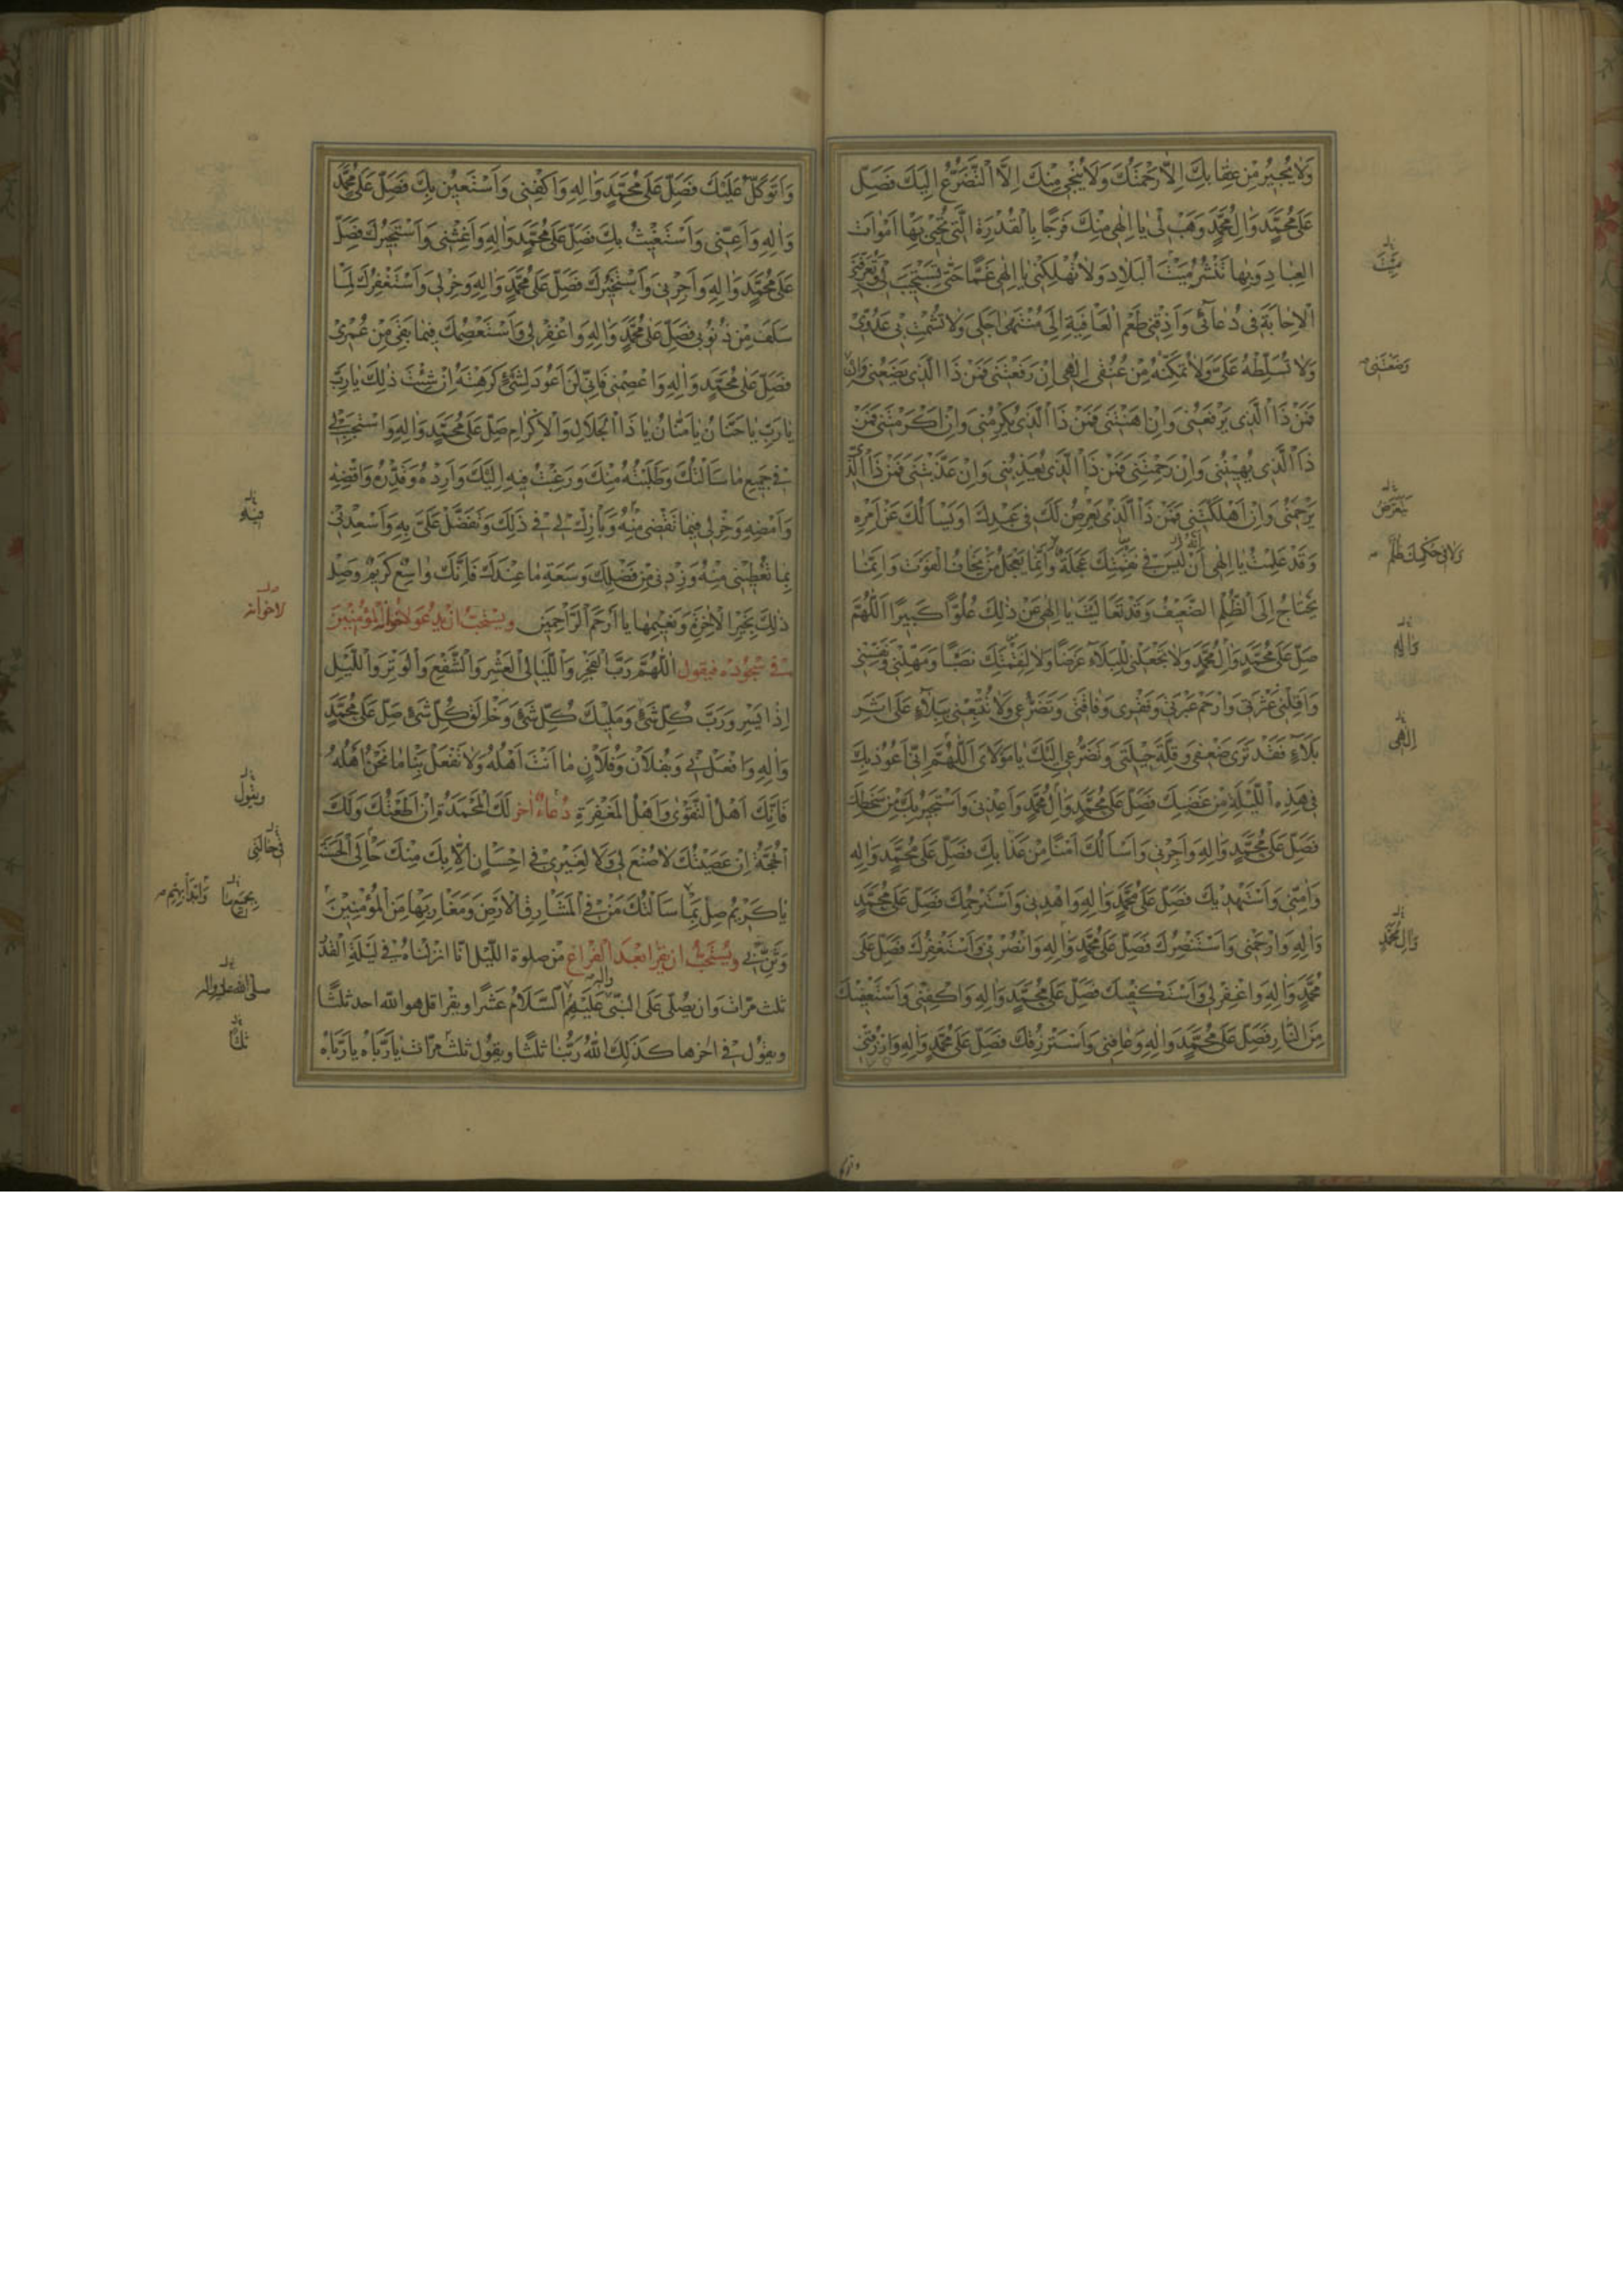 وَلَا يُجِيرُ مِنْ عِقَابِكَ اِلَّا رَحْمَتُكَ وَلَا يُنْجِي مِنْكَ اِلَّا التَّضَرُّعُ اِلَيْكَ فَصَلِّ
عَلَى مُحَمَّدٍ وَالِ مُحَمَّدٍ وَهَبْ لِي يَا اِلٰهِي مِنْكَ فَرَجًا بِالْقُدْرَةِ الَّتِي تُحْيِي بِهَا اَمْوَاتَ
الْعِبَادِ وَبِهَا تَنْشُرُ مَيْتَ الْبِلَادِ وَلَا تُهْلِكْنِي يَا اِلٰهِي غَمًّا حَتَّى تَسْتَجِيبَ لِي وَتُعَرِّفَنِي
الْاِجَابَةَ فِي دُعَائِي وَاَذِقْنِي طَعْمَ الْعَافِيَةِ اِلَى مُنْتَهَى اَجَلِي وَلَا تُشْمِتْ بِي عَدُوِّي
وَلَا تُسَلِّطْهُ عَلَيَّ وَلَا تُمَكِّنْهُ مِنْ عُنُقِي اِلٰهِي اِنْ رَفَعْتَنِي فَمَنْ ذَا الَّذِي يَضَعُنِي وَاِنْ
فَمَنْ ذَا الَّذِي يَرْفَعُنِي وَاِنْ اَهَنْتَنِي فَمَنْ ذَا الَّذِي يُكْرِمُنِي وَاِنْ اَكْرَمْتَنِي فَمَنْ
ذَا الَّذِي يُهِينُنِي وَاِنْ رَحِمْتَنِي فَمَنْ ذَا الَّذِي يُعَذِّبُنِي وَاِنْ عَذَّبْتَنِي فَمَنْ ذَا الَّذِي
يَرْحَمُنِي وَاِنْ اَهْلَكْتَنِي فَمَنْ ذَا الَّذِي يَعْرِضُ لَكَ فِي عَبْدِكَ اَوْ يَسْاَلُكَ عَنْ اَمْرِهِ
وَقَدْ عَلِمْتُ يَا اِلٰهِي اَنْ لَيْسَ فِي نَقِمَتِكَ عَجَلَةٌ وَاِنَّمَا يَعْجَلُ مَنْ يَخَافُ الْفَوْتَ وَاِنَّمَا
يَحْتَاجُ اِلَى الظُّلْمِ الضَّعِيفُ وَقَدْ تَعَالَيْتَ يَا اِلٰهِي عَنْ ذٰلِكَ عُلُوًّا كَبِيرًا اَللّٰهُمَّ
صَلِّ عَلَى مُحَمَّدٍ وَالِ مُحَمَّدٍ وَلَا تَجْعَلْنِي لِلْبَلَاءِ غَرَضًا وَلَا لِنَقِمَتِكَ نَصَبًا وَمَهِّلْنِي وَنَفِّسْنِي
وَاَقِلْنِي عَثْرَتِي وَارْحَمْ عَبْرَتِي وَفَقْرِي وَفَاقَتِي وَتَضَرُّعِي وَلَا تُتْبِعْنِي بِبَلَاءٍ عَلَى اَثَرِ
بَلَاءٍ فَقَدْ تَرَى ضَعْفِي وَقِلَّةَ حِيلَتِي وَتَضَرُّعِي اِلَيْكَ يَا مَوْلَايَ اَللّٰهُمَّ اِنِّي اَعُوذُ بِكَ
فِي هٰذِهِ اللَّيْلَةِ مِنْ غَضَبِكَ فَصَلِّ عَلَى مُحَمَّدٍ وَالِ مُحَمَّدٍ وَاَعِذْنِي وَاَسْتَجِيرُ بِكَ مِنْ سَخَطِكَ
فَصَلِّ عَلَى مُحَمَّدٍ وَالِهِ وَاَجِرْنِي وَاَسْاَلُكَ اَمْنًا مِنْ عَذَابِكَ فَصَلِّ عَلَى مُحَمَّدٍ وَالِهِ
وَاٰمِنِّي وَاَسْتَهْدِيكَ فَصَلِّ عَلَى مُحَمَّدٍ وَالِهِ وَاهْدِنِي وَاَسْتَرْحِمُكَ فَصَلِّ عَلَى مُحَمَّدٍ
وَالِهِ وَارْحَمْنِي وَاَسْتَنْصِرُكَ فَصَلِّ عَلَى مُحَمَّدٍ وَالِهِ وَانْصُرْنِي وَاَسْتَغْفِرُكَ فَصَلِّ عَلَى
مُحَمَّدٍ وَالِهِ وَاغْفِرْ لِي وَاَسْتَكْفِيكَ فَصَلِّ عَلَى مُحَمَّدٍ وَالِهِ وَاكْفِنِي وَاَسْتَعْفِيكَ
مِنَ النَّارِ فَصَلِّ عَلَى مُحَمَّدٍ وَالِهِ وَعَافِنِي وَاَسْتَرْزِقُكَ فَصَلِّ عَلَى مُحَمَّدٍ وَالِهِ وَارْزُقْنِي
مَيِّتَ
وَضَعْتَنِي
يَتَعَرَّضُ
وَلَا فِي حُكْمِكَ ظُلْمٌ
وَالِهِ
اِلٰهِي
وَالِ مُحَمَّدٍ
وَاَتَوَكَّلُ عَلَيْكَ فَصَلِّ عَلَى مُحَمَّدٍ وَالِهِ وَاكْفِنِي وَاَسْتَعِينُ بِكَ فَصَلِّ عَلَى مُحَمَّدٍ
وَالِهِ وَاَعِنِّي وَاَسْتَغِيثُ بِكَ فَصَلِّ عَلَى مُحَمَّدٍ وَالِهِ وَاَغِثْنِي وَاَسْتَجِيرُكَ فَصَلِّ
عَلَى مُحَمَّدٍ وَالِهِ وَاَجِرْنِي وَاَسْتَخِيرُكَ فَصَلِّ عَلَى مُحَمَّدٍ وَالِهِ وَخِرْ لِي وَاَسْتَغْفِرُكَ لِمَا
سَلَفَ مِنْ ذُنُوبِي فَصَلِّ عَلَى مُحَمَّدٍ وَالِهِ وَاغْفِرْ لِي وَاَسْتَعْصِمُكَ فِيمَا بَقِيَ مِنْ عُمْرِي
فَصَلِّ عَلَى مُحَمَّدٍ وَالِهِ وَاعْصِمْنِي فَاِنِّي لَنْ اَعُودَ لِشَيْءٍ كَرِهْتَهُ اِنْ شِئْتَ ذٰلِكَ يَا رَبِّ
يَا رَبِّ يَا حَنَّانُ يَا مَنَّانُ يَا ذَا الْجَلَالِ وَالْاِكْرَامِ صَلِّ عَلَى مُحَمَّدٍ وَالِهِ وَاسْتَجِبْ لِي
فِي جَمِيعِ مَا سَاَلْتُكَ وَطَلَبْتُهُ مِنْكَ وَرَغِبْتُ فِيهِ اِلَيْكَ وَاَرِدْهُ وَقَدِّرْهُ وَاقْضِهِ
وَاَمْضِهِ وَخِرْ لِي فِيمَا تَقْضِي مِنْهُ وَبَارِكْ لِي فِي ذٰلِكَ وَتَفَضَّلْ عَلَيَّ بِهِ وَاَسْعِدْنِي
بِمَا تُعْطِينِي مِنْهُ وَزِدْنِي مِنْ فَضْلِكَ وَسَعَةِ مَا عِنْدَكَ فَاِنَّكَ وَاسِعٌ كَرِيمٌ وَصِلْ
ذٰلِكَ بِخَيْرِ الْاٰخِرَةِ وَنَعِيمِهَا يَا اَرْحَمَ الرَّاحِمِينَ وَيُسْتَحَبُّ اَنْ يَدْعُوَ لاخوانه الْمُؤْمِنِينَ
فِي سُجُودِهِ فَيَقُولُ اَللّٰهُمَّ رَبَّ الْفَجْرِ وَاللَّيَالِي الْعَشْرِ وَالشَّفْعِ وَالْوَتْرِ وَاللَّيْلِ
اِذَا يَسْرِ وَرَبَّ كُلِّ شَيْءٍ وَمَلِيكَ كُلِّ شَيْءٍ وَخَالِقَ كُلِّ شَيْءٍ صَلِّ عَلَى مُحَمَّدٍ
وَالِهِ وَافْعَلْ بِي وَبِفُلَانٍ وَفُلَانٍ مَا اَنْتَ اَهْلُهُ وَلَا تَفْعَلْ بِنَا مَا نَحْنُ اَهْلُهُ
فَاِنَّكَ اَهْلُ التَّقْوَى وَاَهْلُ الْمَغْفِرَةِ دُعَاءٌ اٰخَرُ لَكَ الْمَحْمَدَةُ اِنْ اَطَعْتُكَ وَلَكَ
الْحُجَّةُ اِنْ عَصَيْتُكَ لَا صُنْعَ لِي وَلَا لِغَيْرِي فِي اِحْسَانٍ اِلَّا بِكَ مِنْكَ حَالِيَ الْحَسَنَةِ
يَا كَرِيمُ صِلْ بِمَا سَاَلْتُكَ مَنْ فِي مَشَارِقِ الْاَرْضِ وَمَغَارِبِهَا مِنَ الْمُؤْمِنِينَ
وَثَنِّ بِي وَيُسْتَحَبُّ اَنْ يَقْرَاَ بَعْدَ الْفَرَاغِ مِنْ صَلٰوةِ اللَّيْلِ اِنَّا اَنْزَلْنَاهُ فِي لَيْلَةِ الْقَدْرِ
ثلث مرات وان يصلى على النبي وآله عَلَيْهِمُ السَّلَامُ عَشْرًا ويقرا قل هو الله احد ثلثًا
ويقول في اخرها كَذٰلِكَ اللهُ رَبُّنَا ثلثًا ويقول ثلث مرات يَا رَبَّاهُ يَا رَبَّاهُ
فِيهِ
لاخوانه
ويقول
فِي حَالَتِي
بِجَمِيعِ مَا
وَابْدَأْ بِهِمْ
صلى الله عليه واله
ثلثًا